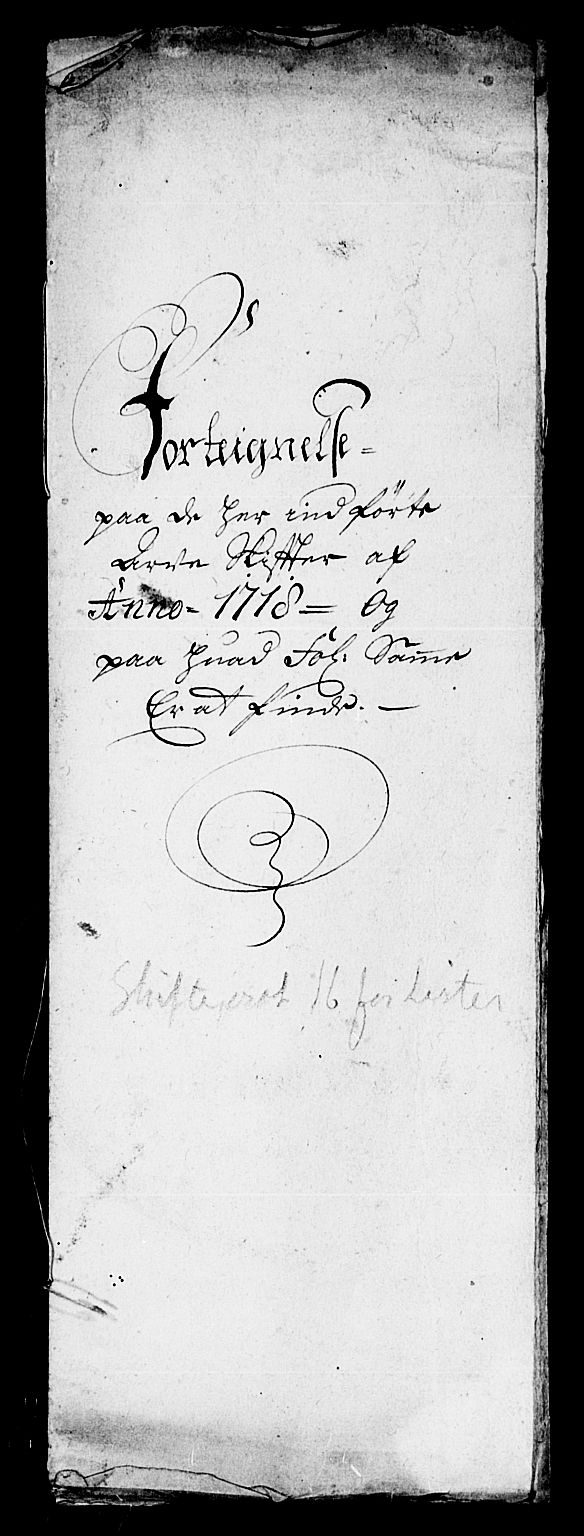 Forteignelse=
paa de her indførte
Arve Skiffter af
Anno= 1718= Og
paa huad Fol: Same
Er at finde. —
Skifteprot 16 for Lister